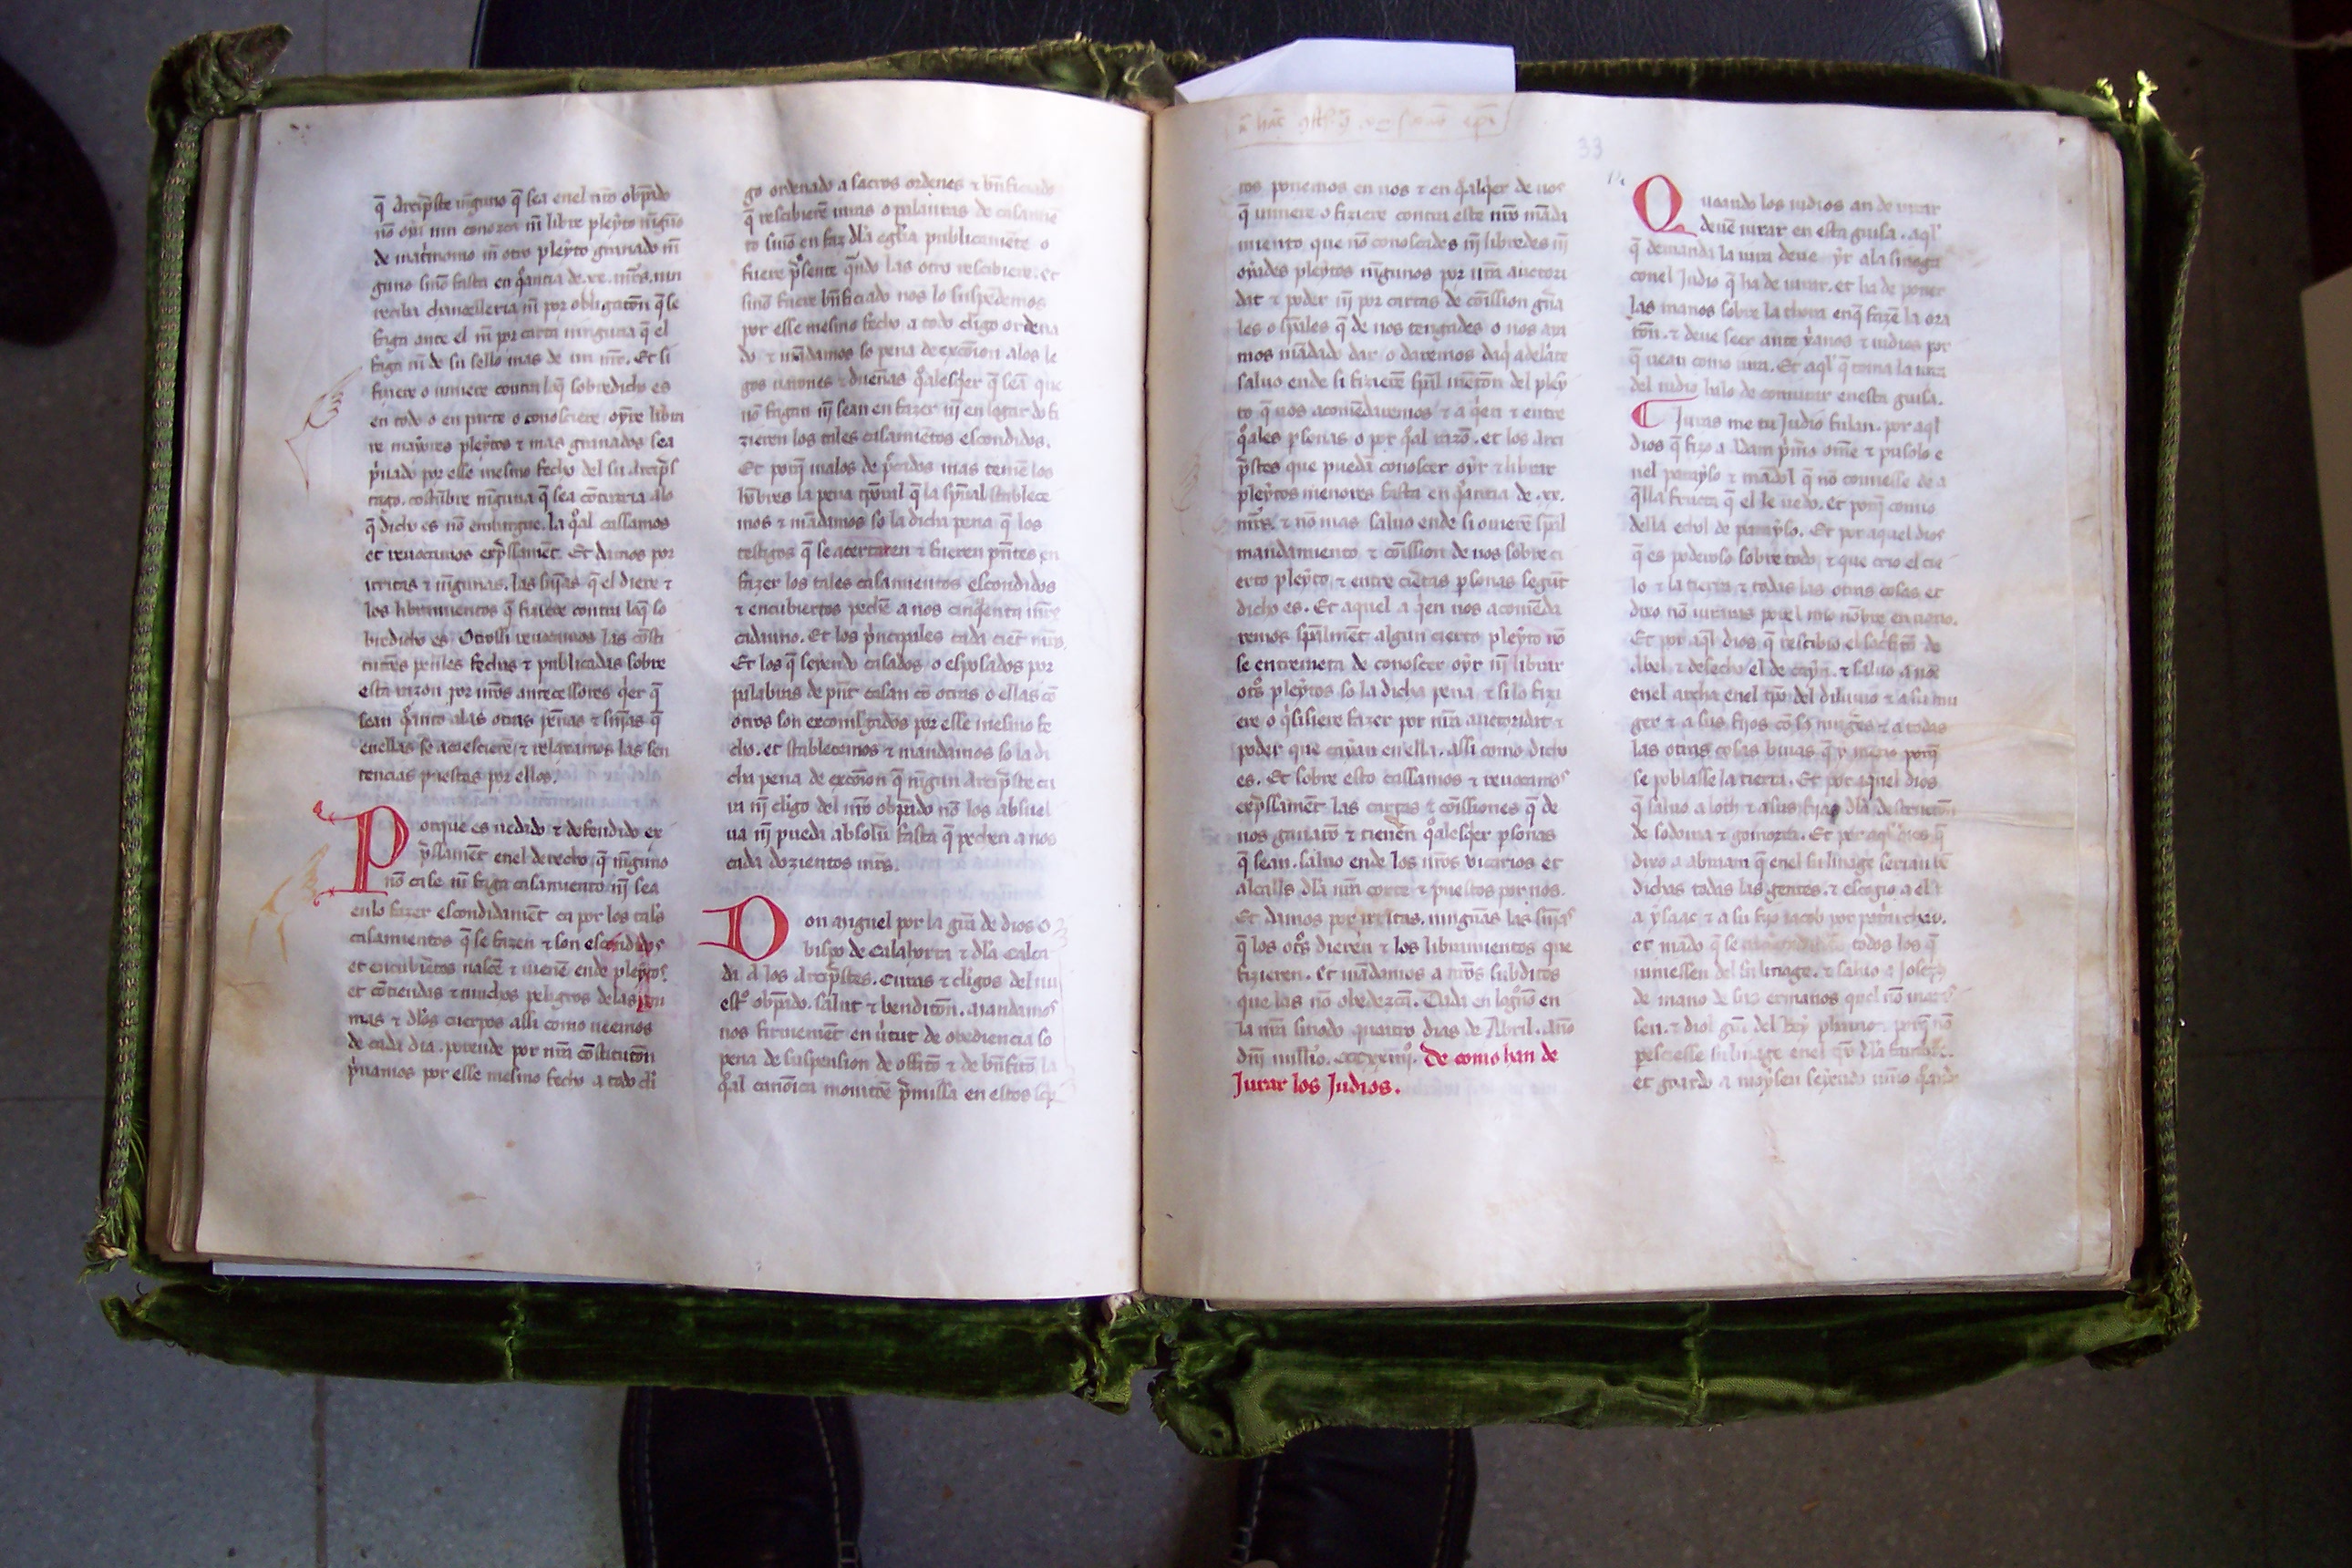 q̃ arcip̃ste nĩguno q̃ sea enel nr̃o obp̃ado
nõ oya nin conozca nĩ libre pleyto nĩgũo
de mat'monio nĩ otro pleyto granado nĩ
guno sinõ fasta en q̃antia de .xx. mr̃s. nin
reciba chancelleria nĩ por obligatõn q̃ se
faga ante el nĩ por carta ninguna q̃ el
faga nĩ de su sello mas de un mr̃. Et si
fiziere o viniere contra laq̃ sobredicho es
en todo o en parte o conosciere oyre libra
re mayores pleytos & mas granados sea
p'uado por esse mesmo fecho del su arcip̃s
tago. costũbre nĩguna q̃ sea cõtraria alo
q̃ dicho es nõ embargue. la q̃al cassamos
et reuocamos exp̃ssamẽt. Et damos por
irritas & nĩgunas. las sñias q̃ el diere &
los libramientos q̃ fiziere contra laq̃ so
bredicho es. Otrossi reuocamos las cõsti
tuciões penales fechas & publicadas sobre
esta razon por nr̃os antecessores q̃er q̃
sean q̃anto alas otras penas & sñias q̃
enellas se acaescierẽ, & relaxamos las sen
tencias puestas por ellos.
Porque es uedado & defendido ex
p̃ssamẽt enel derecho q̃ nĩguno
nõ case nĩ faga casamiento nĩ sea
enlo fazer escondidamẽt ca por los tales
casamientos q̃ se fazen & son escondidos
et encubiertos nascẽ & uienẽ ende pleytos
et cõtiendas & muchos peligros delas
mas & dlos cuerpos assi como ueemos
de cada dia. porende por nr̃a cõstitutõn
p'uamos por esse mesmo fecho a todo cli
go ordenado a sacros ordenes & bñficiado
q̃ rescibierẽ iuras o palauras de casamiẽ
to sinõ en faz dla egl̃ia publicamẽte o
fuere p̃sente q̃ndo las otro rescibiere. et
sinõ fuere bñficiado nos lo suspẽdemos
por esse mesmo fecho a todo cl̃igo ordena
do & mãdamos so pena de excõion alos le
gos uarones & dueñas q̃alesq̃er q̃ seã que
nõ fagan nĩ sean en fazer nĩ en logar do fi
zieren los tales casamiẽtos escondidos.
Et porq̃ malos de p̃cados mas temẽ los
hõbres la pena tp̃oral q̃ la sp̃ual stablece
mos & mãdamos so la dicha pena q̃ los
testigos q̃ se acertaren & fueren p̃ntes en
fazer los tales casamientos escondidos
& encubiertos pechẽ a nos cinq̃enta mr̃s
cadauno. Et los p'ncipales cada ciẽt mr̃s.
Et los q̃ seyendo casados o esposados por
palabras de p̃nt casan cõ otras o ellas cõ
otros son excomũgados por esse mesmo fe
cho. et stablecemos & mandamos so la di
cha pena de excõion q̃ nĩgun arcip̃ste cu
ra nĩ cl̃igo del nr̃o obp̃ado nõ los absuel
ua nĩ pueda absolũ fasta q̃ pechen a nos
cada dozientos mr̃s.
Don miguel por la gr̃a de dios o
bispo de Calahorra & dla Calça
da. A los Arcip̃stes. Curas & cl̃igos del nu
estº obp̃ado. salut & benditõn. mandamos
uos firmemẽt en ũtut de obediencia so
pena de suspension de offitõ & de bñfitõ. la
q̃al canõica monitõe p̃missa en estos sep
33
tos ponemos en uos & en q̃alq̃er de uos
q̃ uiniere o fiziere contra este nr̃o mãda
miento que nõ conoscades nĩ libredes nĩ
oyades pleytos nĩgunos por nr̃a auctori
dat & poder nĩ por cartas de cõission gñra
les o sp̃ales q̃ de nos tengades o nos aya
mos mãdado dar o daremos daq̃ adelãte
saluo ende si fizierẽ sp̃al mẽtõn del pley
to q̃ nos acomẽdaremos & a q̃en & entre
q̃ales p̃sonas o por q̃al razõ. et los arci
p̃stes que puedã conoscer oyr & librar
pleytos menores fasta en q̃antia de .xx.
mr̃s. & nõ mas saluo ende si ouierẽ sp̃al
mandamiento & cõission de nos sobre ci
erto pleyto, & entre ciertas p̃sonas segũt
dicho es. Et aquel a q̃en nos acomẽda
remos sp̃almẽt algun cierto pleyto nõ
se entremeta de conoscer oyr nĩ librar
otºs pleytos so la dicha pena & si lo fizi
ere o q̃sisiere fazer por nr̃a auctoridat &
poder que cayan en ella. assi como dicho
es. Et sobre esto cassamos & reuocamos
exp̃ssamẽt las cartas & cõissiones q̃ de
nos ganarõ & tienen q̃alesq̃er p̃sonas
q̃ sean. saluo ende los nr̃os vicarios et
alcalls dla nr̃a corte & puestos por nos.
Et damos por irritas. ningunas las sñias
q̃ los otºs dieren & los libramientos que
fizieren. et mãdamos a nr̃os subditos
que las nõ obedezcã. Dada en logºño en
la nr̃a sinodo quatro dias de Abril. año
De como han de
Jurar los Judios.
Quando los iudios an de iurar
deuẽ iurar en esta guisa. aq̃l
q̃ demanda la iura deue yr ala sinoga
conel Judio q̃ ha de iurar. et ha de poner
las manos sobre la thora enq̃ fazẽ la ora
tõn. & deue seer ante x̃anos & iudios por
q̃ uean como iura. Et aq̃l q̃ toma la iura
del iudio halo de coniurar enesta guisa.
Juras me tu Judio fulan. por aq̃l
dios q̃ fizo a Adam p'mo om̃e & pusolo e
nel parayso & mãdol q̃ nõ comiesse de a
q̃lla fructa q̃ el le uedo. et porq̃ comio
della echol de parayso. Et por aquel dios
q̃ es poderoso sobre todo, & que crio el cie
lo & la tierra & todas las otras cosas et
dixo nõ iuraras por el mio nõbre en uano.
Et por aq̃l dios q̃ rescibio el sacfitõ de
Abel & desecho el de cayn. & saluo a noe
enel archa enel tpõ del diluuio & a su mu
ger & a sus fijos cõ sus mugẽs & a todas
las otras cosas biuas q̃ y metio porq̃
se poblasse la tierra. Et por aquel dios
q̃ saluo a loth & a sus fijas dla destruciõn
de sodoma & gomorra. Et por aq̃l dios q̃
dixo a abram q̃ enel su linage seriã bẽ
dichas todas las gentes. & escogio a el &
a ysaac & a su fijo iacob por patriarchas.
et mãdo q̃ se todos los q̃
uiniessen del su linage. & saluo a Joseph
de mano de sus ermanos quel nõ matas
sen. & diol gr̃a del Rey pharao. porq̃ nõ
peresciesse su linage enel tpõ dla fambre.
et guardo a moysen seyendo niño q̃ando